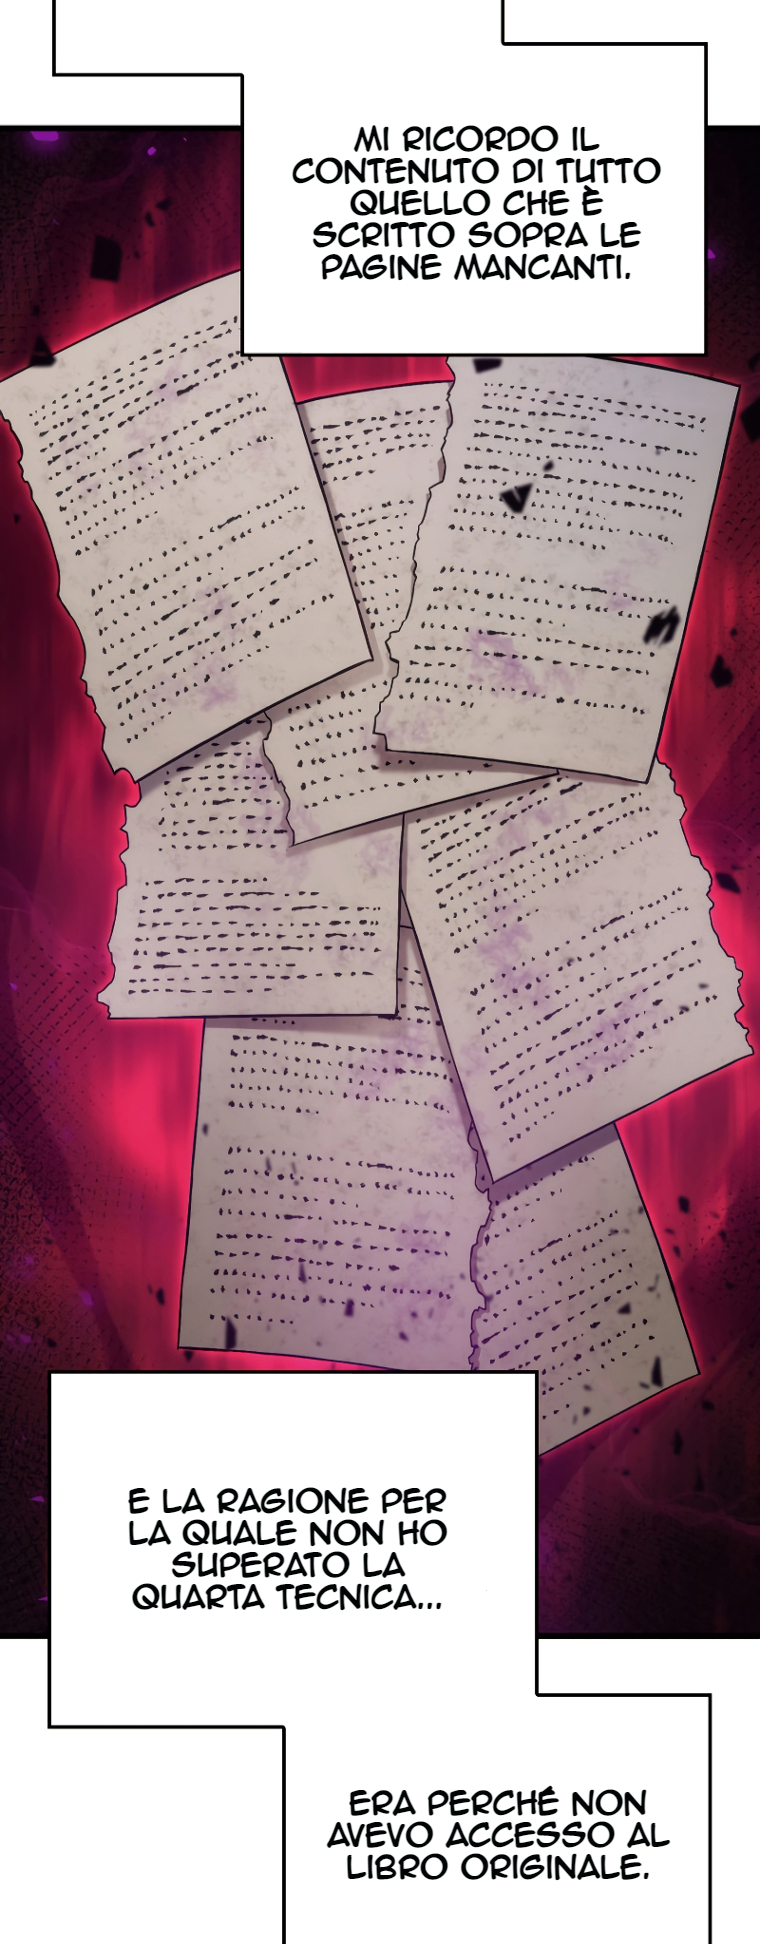 MI RICORDO IL
CONTENUTO DI TUTTO
QUELLO CHE È
SCRITTO SOPRA LE
PAGINE MANCANTI.
E LA RAGIONE PER
LA QUALE NON HO
SUPERATO LA
QUARTA TECNICA...
ERA PERCHÉ NON
AVEVO ACCESSO AL
LIBRO ORIGINALE.